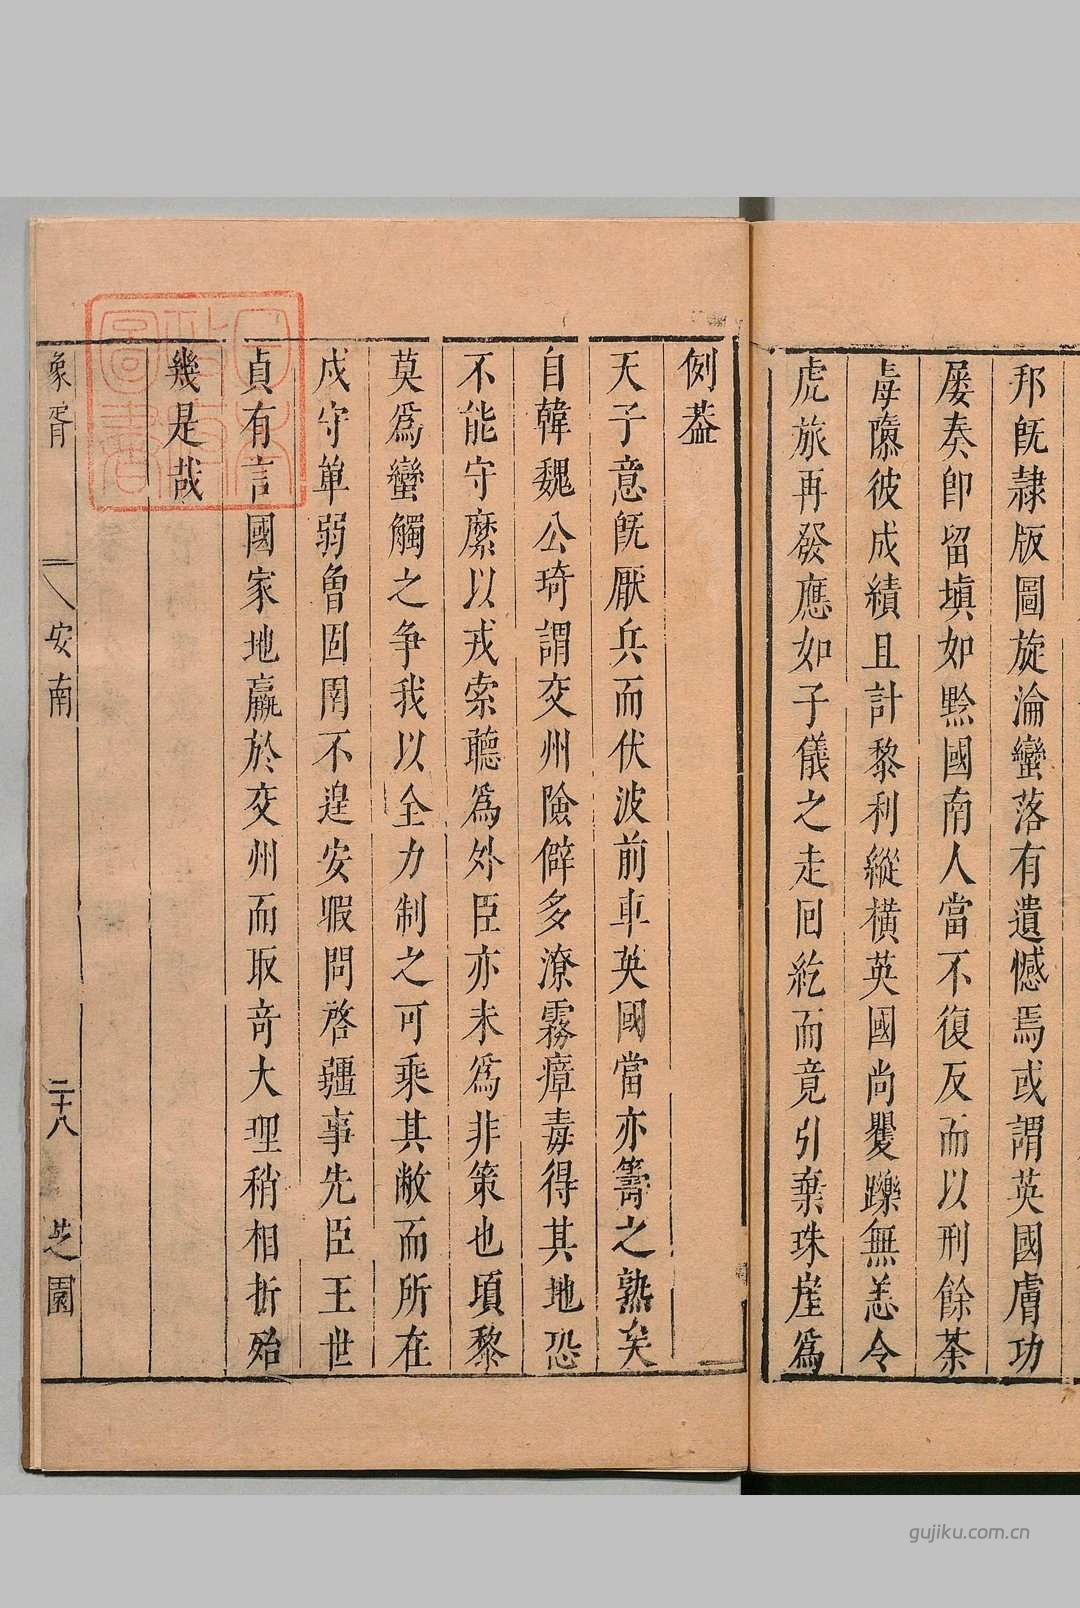 邦旣隷版圖旋淪蠻落有遺憾焉或謂英國膚功
屡奏卽留塡如黔國南人當不復反而以刑餘荼
毒隳彼成績且計黎利縱橫英國尚矍躒無恙令
虎旅再發應如子儀之走回紇而竟引棄珠崖爲
例葢
天子意旣厭兵而伏波前車英國當亦籌之熟矣
自韓魏公琦謂交州險僻多潦霧瘴毒得其地恐
不能守縻以戎索聽爲外臣亦未爲非策也頃黎
莫爲蠻觸之争我以全力制之可乘其敝而所在
戍守单弱魯固圉不遑安暇問啓疆事先臣王世
貞有言國家地贏於交州而取竒大理稍相折殆
幾是哉
象胥
安南
二十八
芝園
gujiku.com.cn